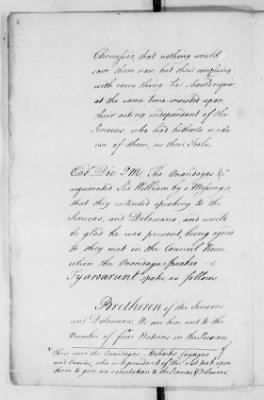 Chenussio, that nothing would
save them now but their complying
with every thing he should require
at the same time insisted upon
their acting independant of the
Senecas who had hitherto made
use of them, as their Tools.
Eod.m Die P.M. The Onondagas &.ca
acquainted Sir William by a Messenger
that they intended speaking to the
Senecas, and Delawares, and would
be glad he was present, being agreed
to they met in the Council Room
when the Onondaga Speaker
Tyawarunt spoke as follows
Bretheren of the Senecas
and Delawares, We are here met to the
Number of four Nations in the Presence
These were the Onondagas, Mohocks, Cayugas
and Oneidas, who independant of the rest took upon
them to give an exhortation to the Senecas & Delawares